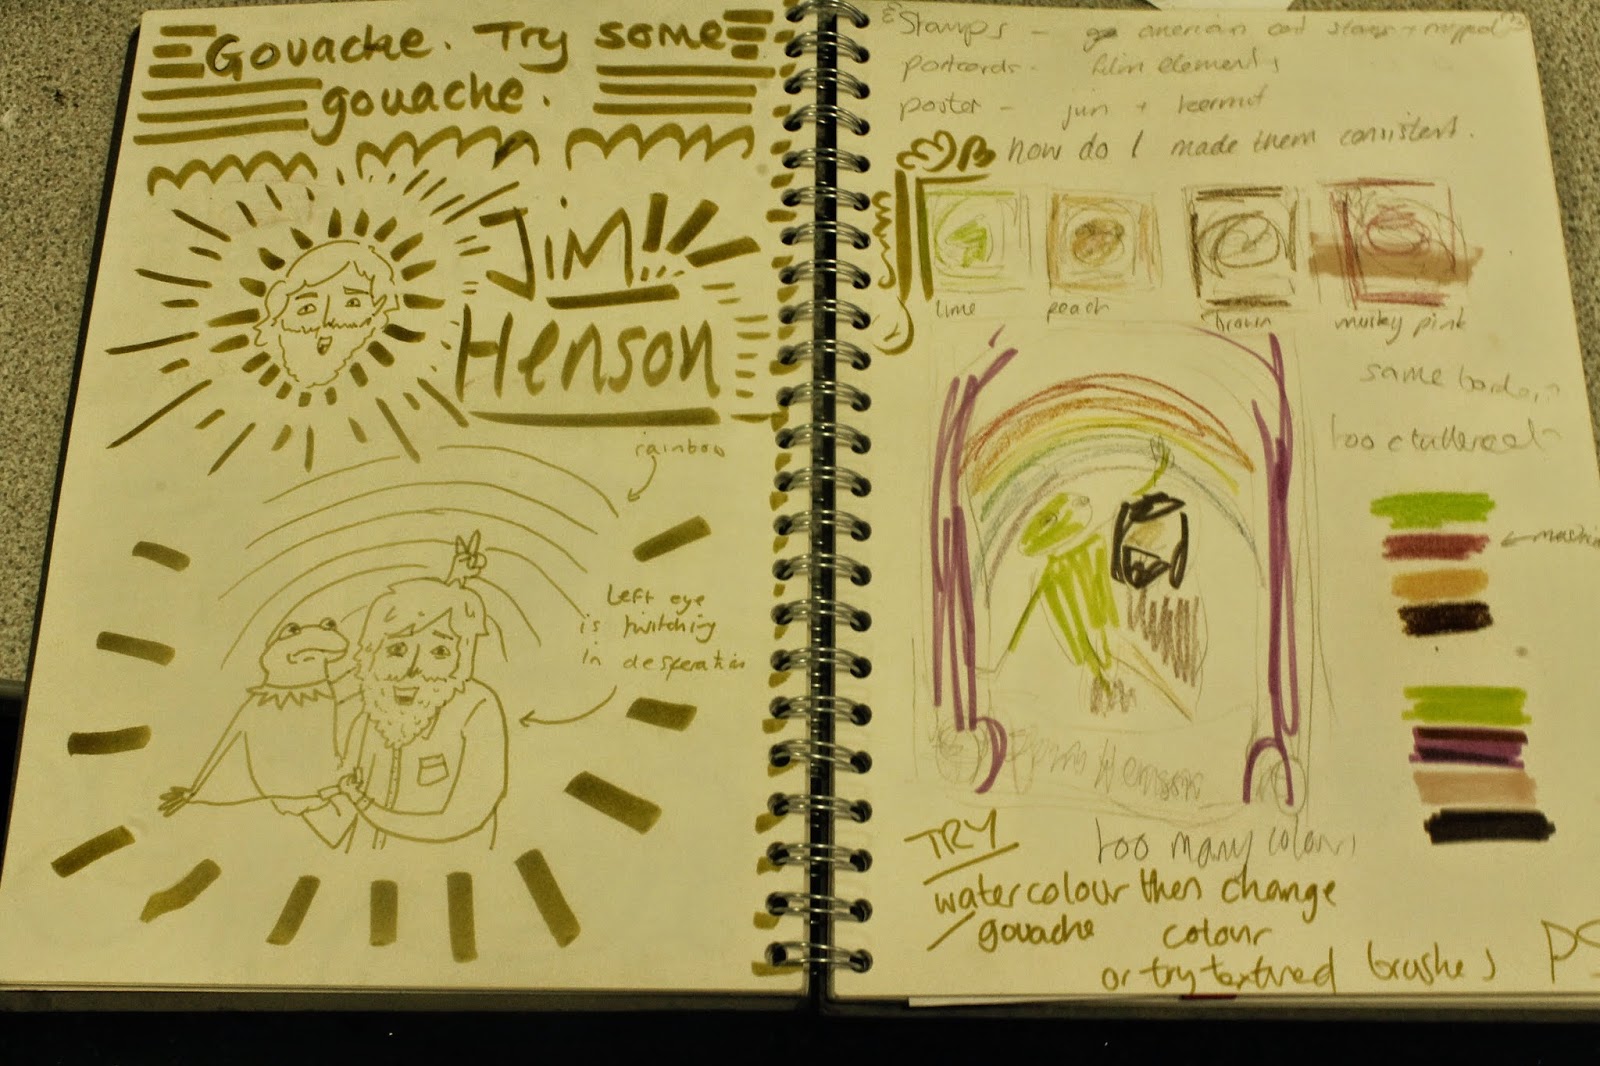 Gouache. Try some
gouache.
Jim
Henson
rainbow
Left eye
is twitching
in desperation
Stamps - american
postcards - film elements
poster - jim + kermit
how do I made them consistent.
lime
peach
brown
musky pink
same border
too cluttered
Jim Henson
too many colours
TRY
watercolour then change
gouache colour
or try textured brushes
PS